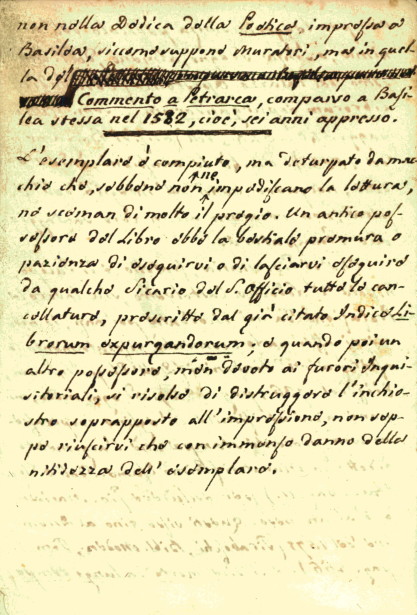 non nella Dedica della Poetica, impressa a
Basilea, siccome suppone Muratori, ma in quel-
la del
Commento a Petrarca, comparso a Basi-
lea stessa nel 1582, cioè, sei anni appresso.
L'esemplare è compiuto, ma deturpato da mac-
chie che, sebbene non ne impediscano la lettura,
ne sceman di molto il pregio. Un antico pos-
sessore del Libro ebbe la bestiale premura o
pazienza di eseguirvi o di lasciarvi eseguire
da qualche Sicario del S. Officio tutte le can-
cellature, prescritte dal già citato Indice Li-
brorum expurgandorum, e quando poi un
altro possessore, men devoto ai furori Inqui-
sitoriali, si risolse di distruggere l'inchio-
stro soprapposto all'impressione, non sep-
pe riuscirvi che con immenso danno della
nitidezza dell'esemplare.